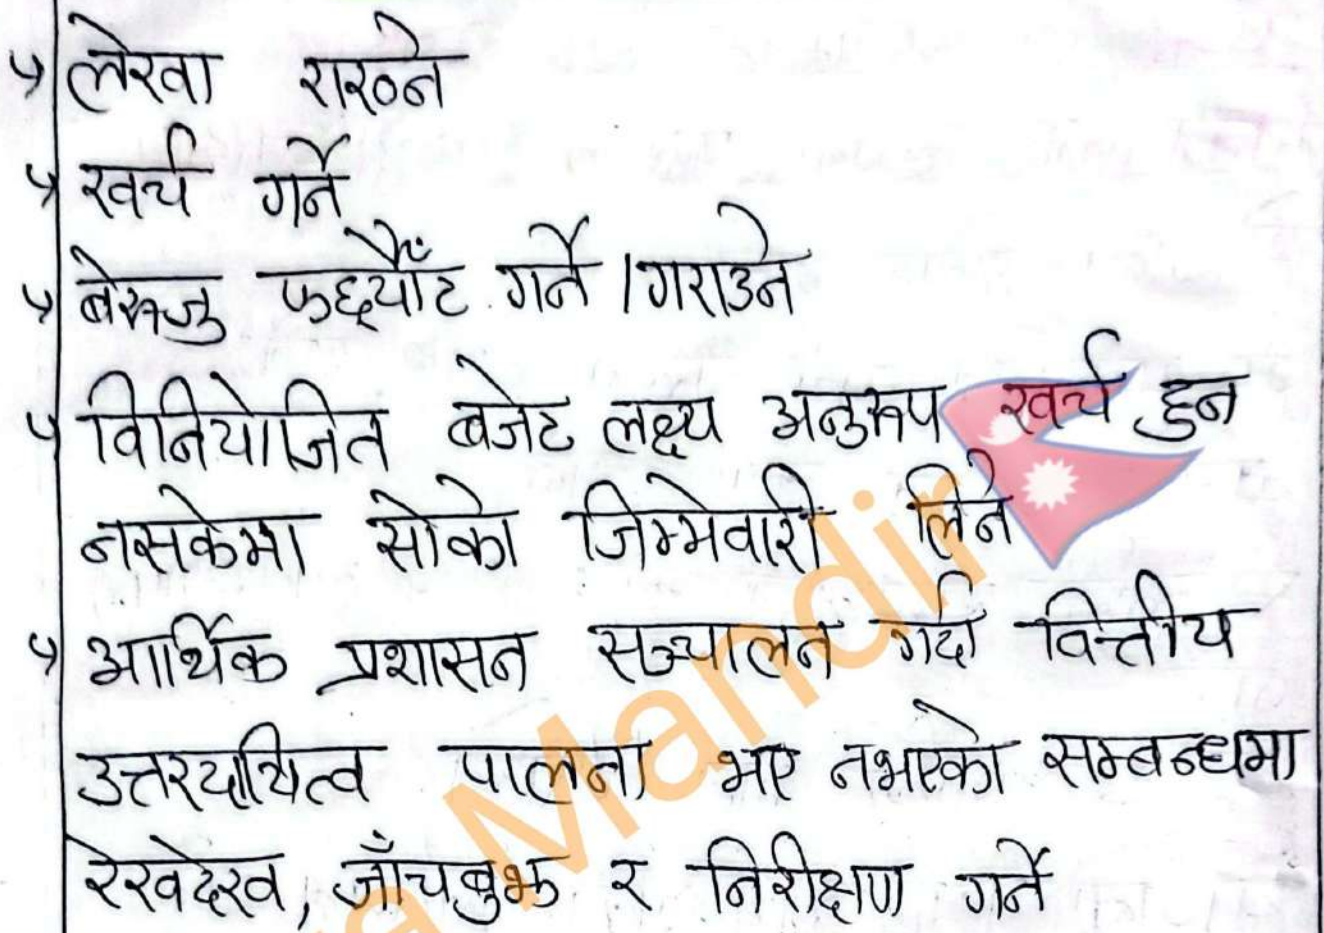 लेखा राख्ने
खर्च गर्ने
बेरुजु फछ्र्यौँट गर्ने / गराउने
विनियोजित बजेट लक्ष्य अनुरूप खर्च हुन
नसकेमा सोको जिम्मेवारी लिने
आर्थिक प्रशासन सञ्चालन गर्दा वित्तीय
उत्तरदायित्व पालना भए नभएको सम्बन्धमा
रेखदेख, जाँचबुझ र निरीक्षण गर्ने
Mandir